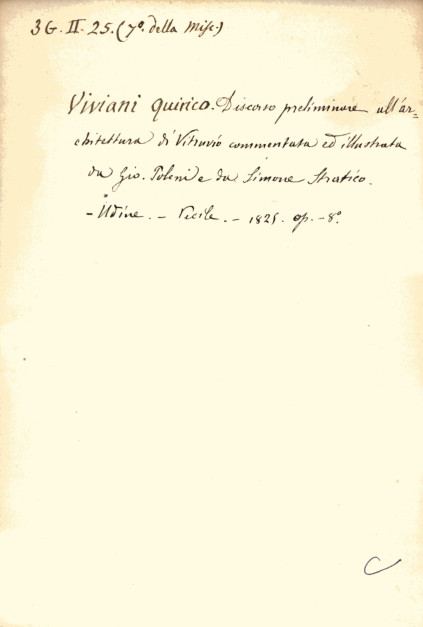 3 G. II. 25. (7º. della Misc.)
Viviani Quirico. Discorso preliminare all'ar=
chitettura di Vitruvio commentata ed illustrata
da Gio. Poleni e da Simone Stratico.
- Udine. - Pecile. - 1825. op. - 8º.
C